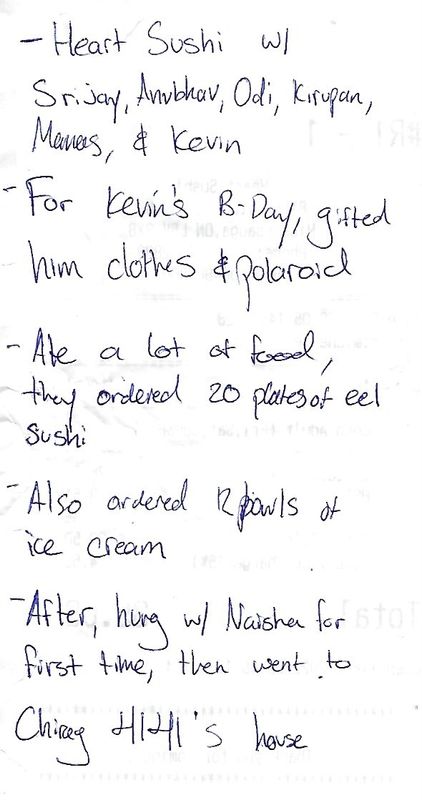 - Heart Sushi w/
Srijay, Anubhav, Odi, Kirupan,
Manas, & Kevin
- For Kevin's B-Day, gifted
him clothes & polaroid
- Ate a lot of food,
they ordered 20 plates of eel
sushi
- Also ordered 12 bowls of
ice cream
- After, hung w/ Naisha for
first time, then went to
Chirag 4141's house